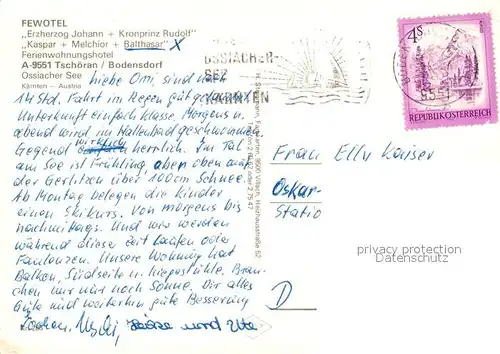 FEWOTEL
„Erzherzog Johann + Kronprinz Rudolf"
„Kaspar + Melchior + Balthasar" X
Ferienwohnungshotel
A-9551 Tschöran / Bodensdorf
Ossiacher See
Kärnten – Austria
OSSIACHER-
SEE
KÄRNTEN
4 S
REPUBLIK ÖSTERREICH
9551
Liebe Omi, sind nach
14 Std. Fahrt im Regen gut gelandet.
Unterkunft einfach Klasse. Morgens u.
abend wird im Hallenbad geschwommen.
Gegend wirklich herrlich. Im Tal
am See ist Frühling aber oben auf
der Gerlitzen über 100cm Schnee.
Ab Montag belegen die Kinder
einen Skikurs. Von morgens bis
nachmittags. Und wir werden
während dieser Zeit laufen oder
faulenzen. Unsere Wohnung hat
Balkon, Südseite u. Liegestühle. Brau-
chen wir nur noch Sonne. Dir alles
Gute und weiterhin gute Besserung
Jochen, Uschi, und Ute
Frau Elly Kaiser
Oskar-
Statio
D
9500 Villach, Heizhausstraße 52
privacy protection
Datenschutz